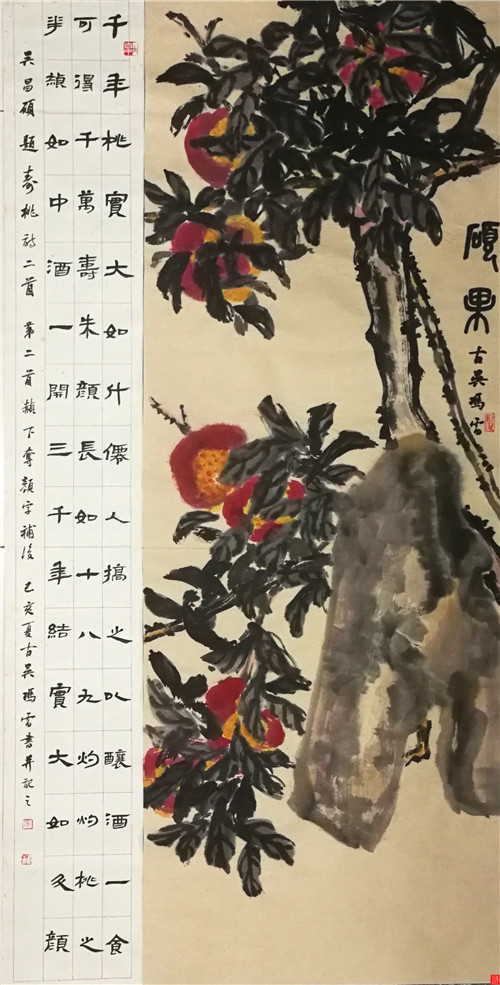 碩果
古吳馮雪
千年桃實大如斗僊人摘之以釀酒一食
可得千萬壽朱顏長如十八九灼灼桃之
華赬如中酒一開三千年結實大如斗顏
吴昌碩題壽桃詩二首 第二首赬下奪顏字補後 己亥夏古吳馮雪書并記之